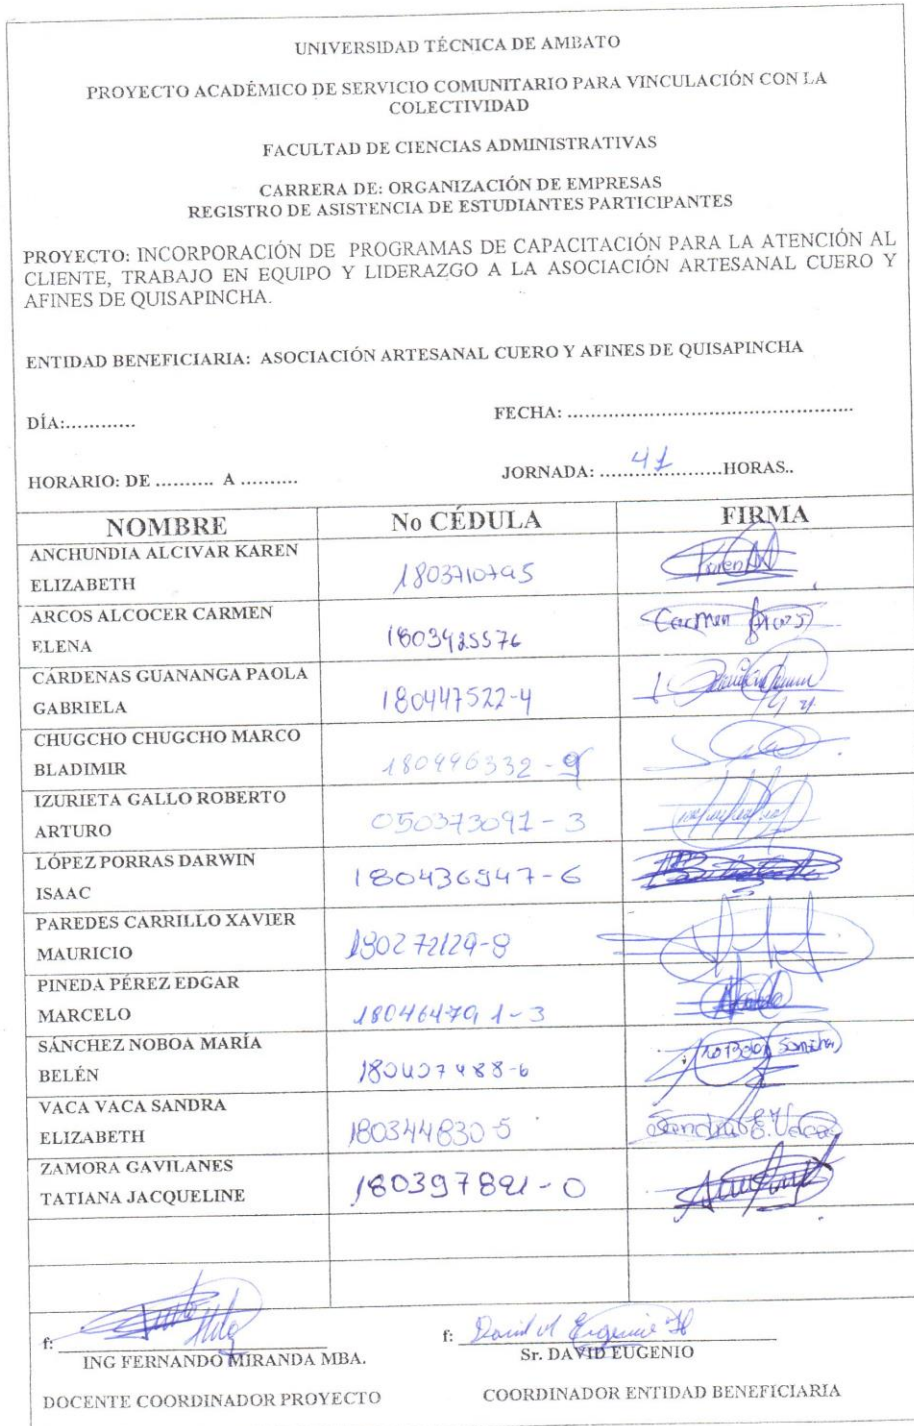 UNIVERSIDAD TÉCNICA DE AMBATO
PROYECTO ACADÉMICO DE SERVICIO COMUNITARIO PARA VINCULACIÓN CON LA
COLECTIVIDAD
FACULTAD DE CIENCIAS ADMINISTRATIVAS
CARRERA DE: ORGANIZACIÓN DE EMPRESAS
REGISTRO DE ASISTENCIA DE ESTUDIANTES PARTICIPANTES
PROYECTO: INCORPORACIÓN DE PROGRAMAS DE CAPACITACIÓN PARA LA ATENCIÓN AL
CLIENTE, TRABAJO EN EQUIPO Y LIDERAZGO A LA ASOCIACIÓN ARTESANAL CUERO Y
AFINES DE QUISAPINCHA.
ENTIDAD BENEFICIARIA: ASOCIACIÓN ARTESANAL CUERO Y AFINES DE QUISAPINCHA
DÍA:............ FECHA: ..................................................
HORARIO: DE .......... A .......... JORNADA: ......41...............HORAS..
NOMBRE No CÉDULA FIRMA
ANCHUNDIA ALCIVAR KAREN
ELIZABETH 1803710795 Karen
ARCOS ALCOCER CARMEN
ELENA Carmen Arcos
CÁRDENAS GUANANGA PAOLA
GABRIELA 180447522-4
CHUGCHO CHUGCHO MARCO
BLADIMIR 180496332-9
IZURIETA GALLO ROBERTO
ARTURO 050373091-3
LÓPEZ PORRAS DARWIN
ISAAC 180436947-6
PAREDES CARRILLO XAVIER
MAURICIO 180272129-8
PINEDA PÉREZ EDGAR
MARCELO 180464791-3
SÁNCHEZ NOBOA MARÍA
BELÉN Sánchez
VACA VACA SANDRA
ELIZABETH 180344830-5 Sandra E. Vaca
ZAMORA GAVILANES
TATIANA JACQUELINE
f: f:
ING FERNANDO MIRANDA MBA. Sr. DAVID EUGENIO
DOCENTE COORDINADOR PROYECTO COORDINADOR ENTIDAD BENEFICIARIA